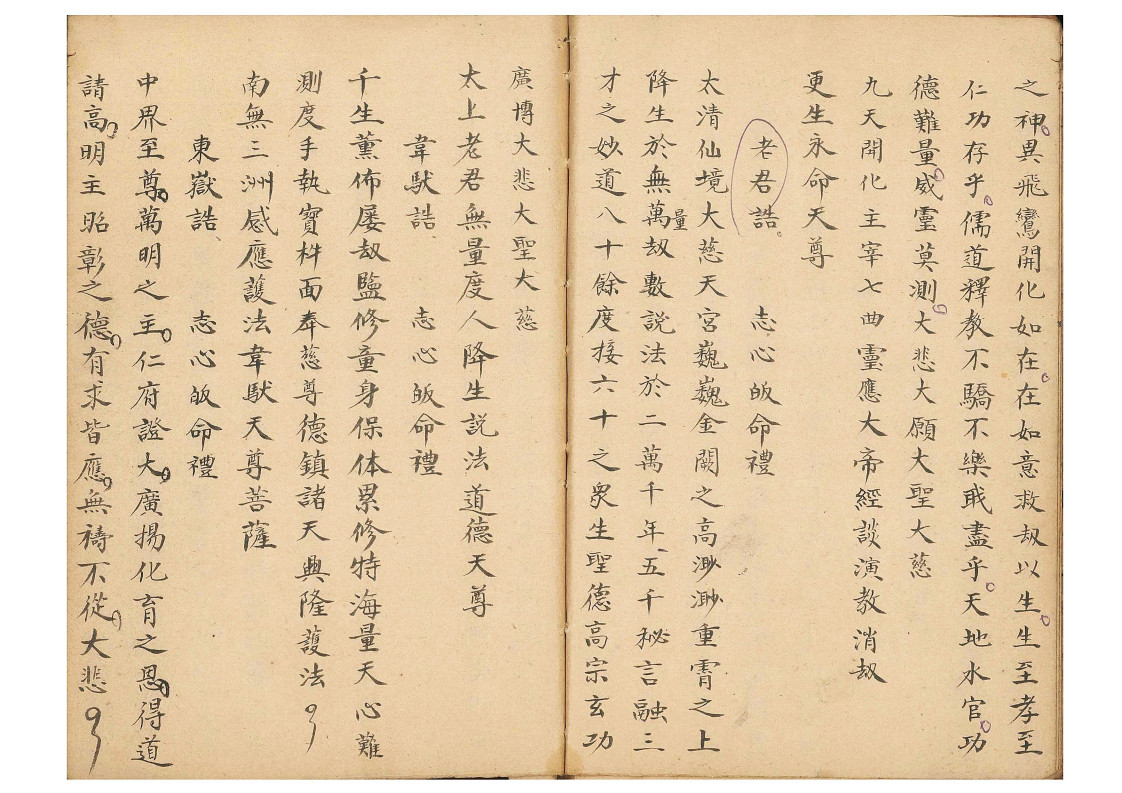 之神異飛鸞開化如在在如意救劫以生生至孝至
仁功存乎儒道釋教不驕不樂職盡乎天地水官功
德難量威靈莫測大悲大願大聖大慈
九天開化主宰七曲靈應大帝經談演教消劫
更生永命天尊
老君誥　志心皈命禮
太清仙境大慈天宮巍巍金闕之高渺渺重霄之上
降生於無量萬劫數説法於二萬千年五千秘言融三
才之妙道八十餘度接六十之衆生聖德高宗玄功
廣博大悲大聖大慈
太上老君無量度人降生説法道德天尊
韋馱誥　志心皈命禮
千生薰佈屡劫盬修童身保体累修特海量天心難
測度手執寶杵面奉慈尊德鎮諸天興隆護法
南無三洲感應護法韋馱天尊菩薩
東嶽誥　志心皈命禮
中界至尊萬明之主仁府證大廣揚化育之恩得道
請高明主昭彰之德有求皆應無禱不從大悲